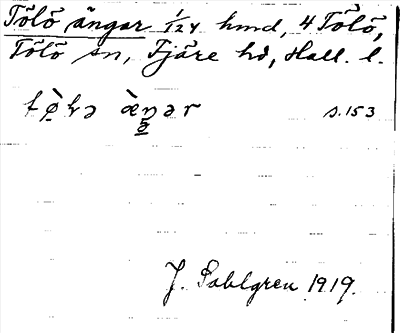 Tölö ängar 1/24 hmd, 4 Tölö,
Tölö sn, Fjäre hd, Hall. l.
s. 153
J. Sahlgren 1919.